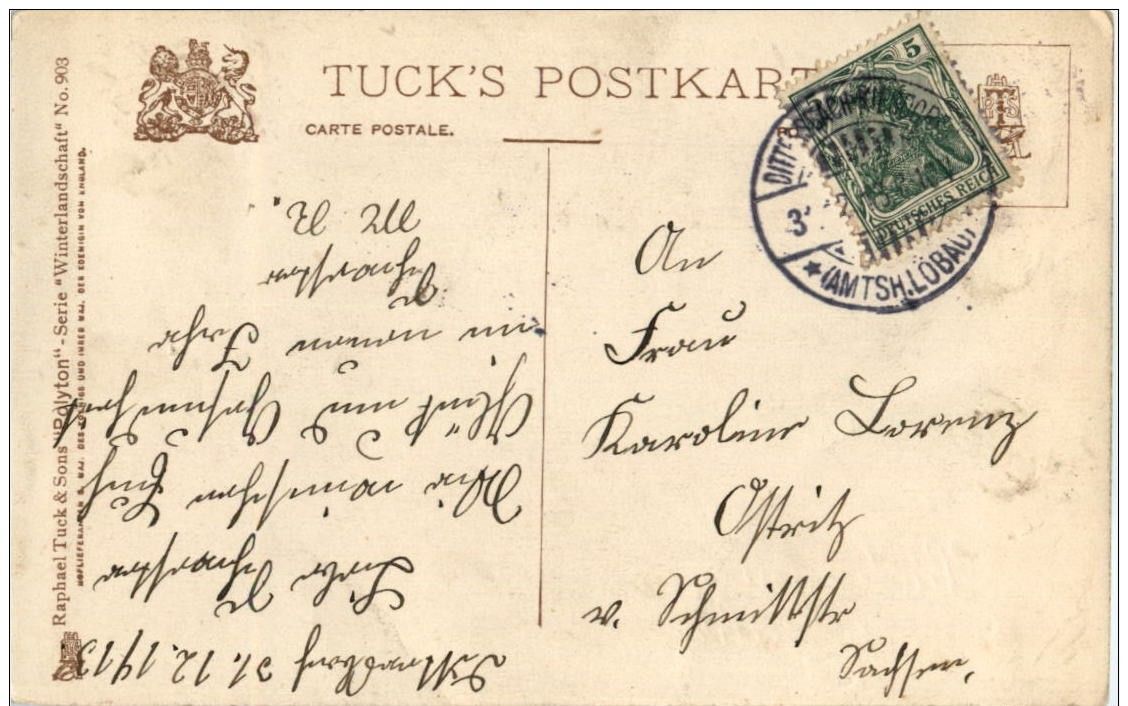 TUCK'S POSTKART
CARTE POSTALE.
Raphael Tuck & Sons "Polyton" - Serie "Winterlandschaft" No. 903
HOFLIEFERANTEN S. MAJ. DES KOENIGS UND IHRER MAJ. DER KOENIGIN VON ENGLAND.
5
DEUTSCHES REICH
(AMTSH.LÖBAU)
31. 12. 1913
Liebe Schwester
Wir wünschen Euch
Glück und Gesundheit
im neuen Jahr
Schwester
An
Frau
Karoline Lorenz
Ostritz
v. Schmittstr
Sachsen.